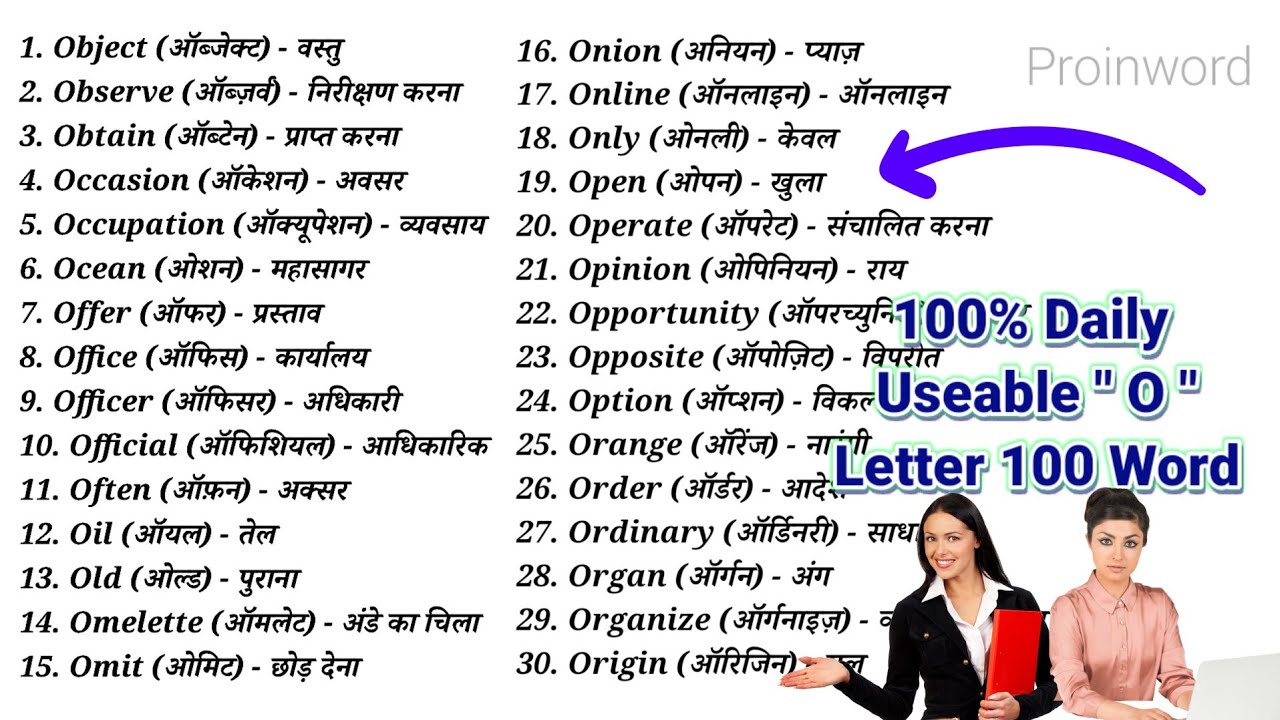 1. Object (ऑब्जेक्ट) - वस्तु
2. Observe (ऑब्ज़र्व) - निरीक्षण करना
3. Obtain (ऑब्टेन) - प्राप्त करना
4. Occasion (ऑकेशन) - अवसर
5. Occupation (ऑक्यूपेशन) - व्यवसाय
6. Ocean (ओशन) - महासागर
7. Offer (ऑफर) - प्रस्ताव
8. Office (ऑफिस) - कार्यालय
9. Officer (ऑफिसर) - अधिकारी
10. Official (ऑफिशियल) - आधिकारिक
11. Often (ऑफ़न) - अक्सर
12. Oil (ऑयल) - तेल
13. Old (ओल्ड) - पुराना
14. Omelette (ऑमलेट) - अंडे का चिला
15. Omit (ओमिट) - छोड़ देना
16. Onion (अनियन) - प्याज़
17. Online (ऑनलाइन) - ऑनलाइन
18. Only (ओनली) - केवल
19. Open (ओपन) - खुला
20. Operate (ऑपरेट) - संचालित करना
21. Opinion (ओपिनियन) - राय
22. Opportunity
23. Opposite (ऑपोज़िट) - विपरीत
24. Option (ऑप्शन) -
25. Orange (ऑरेंज) - नारंगी
26. Order (ऑर्डर) - आदेश
27. Ordinary (ऑर्डिनरी) -
28. Organ (ऑर्गन) - अंग
29. Organize (ऑर्गनाइज़) -
30. Origin (ऑरिजिन) -
Proinword
100% Daily
Useable " O "
Letter 100 Word